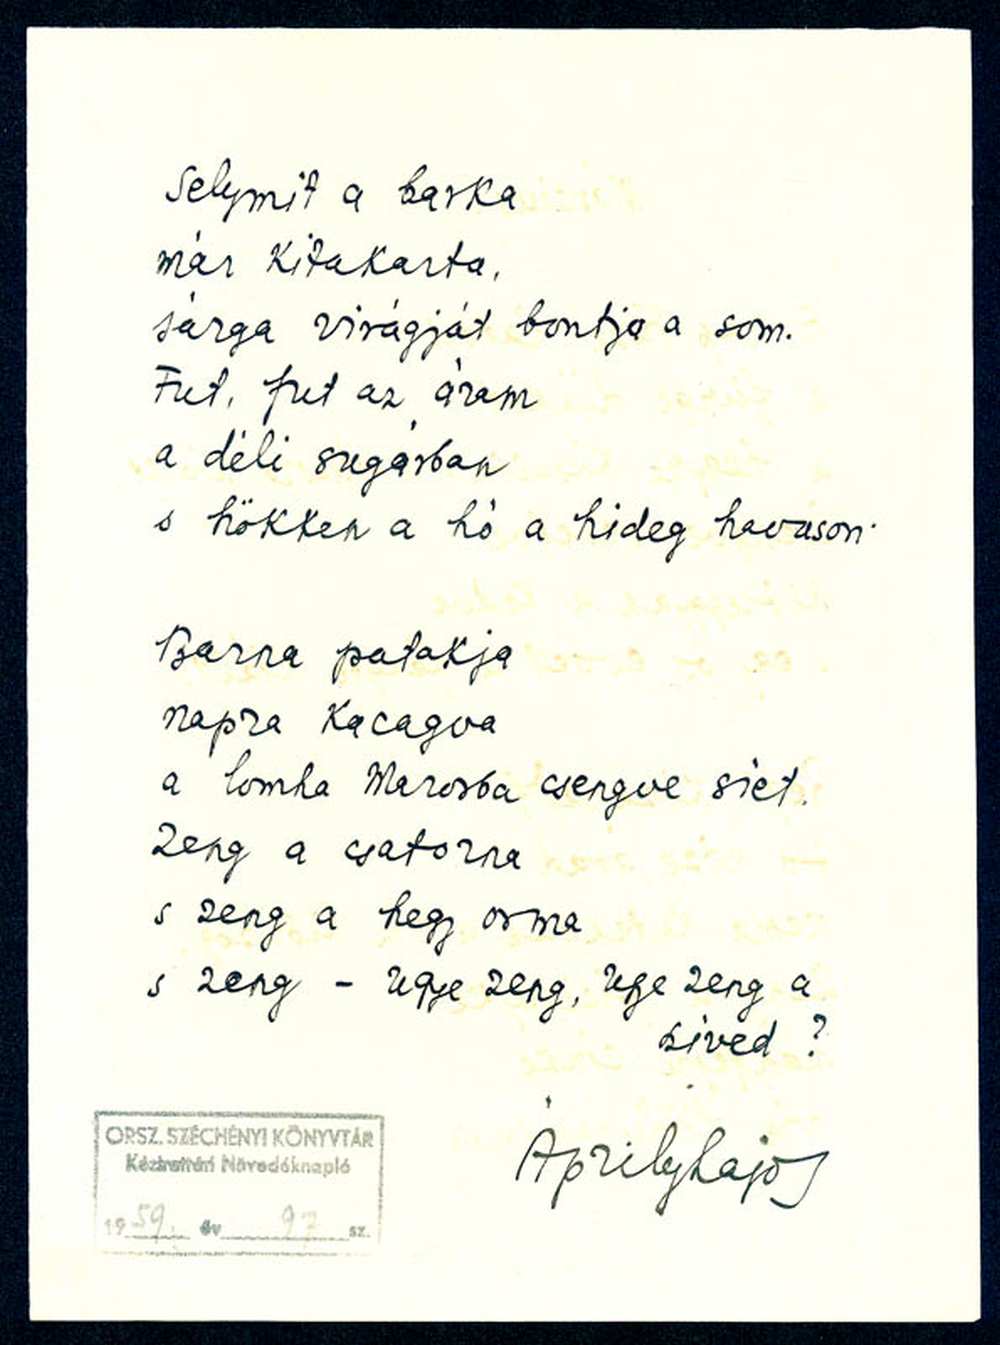 Selymit a barka
már kitakarta,
sárga virágját bontja a som.
Fut, fut az áram
a déli sugárban
s hökken a hó a hideg havason.
Barna patakja
napra kacagva
a lomha Marosba csengve siet.
Zeng a csatorna
s zeng a hegy orma
s zeng – ugye zeng, ugye zeng a
szived?
Áprily Lajos
ORSZ. SZÉCHÉNYI KÖNYVTÁR
Kézirattári Növedéknapló
1959. év 97 sz.